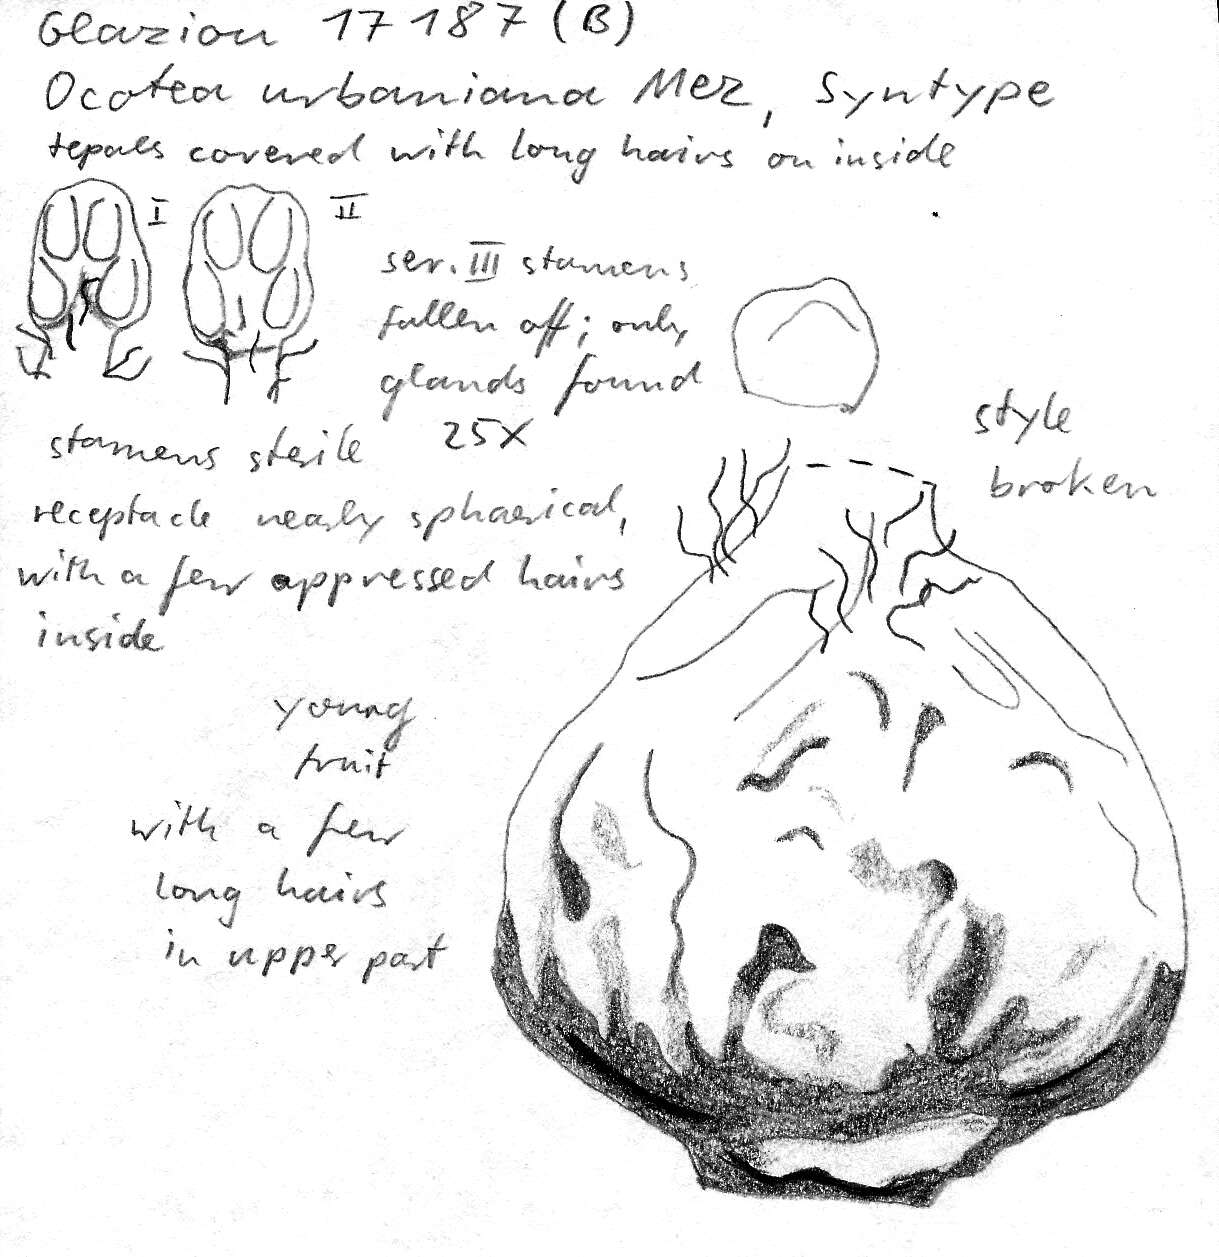 Glaziou 17187 (B)
Ocotea urbaniana Mez, Syntype
tepals covered with long hairs on inside
I
II
ser. III stamens
fallen off; only
glands found
25x
style
broken
stamens sterile
receptacle nearly sphaerical,
with a few appressed hairs
inside
young
fruit
with a few
long hairs
in upper part